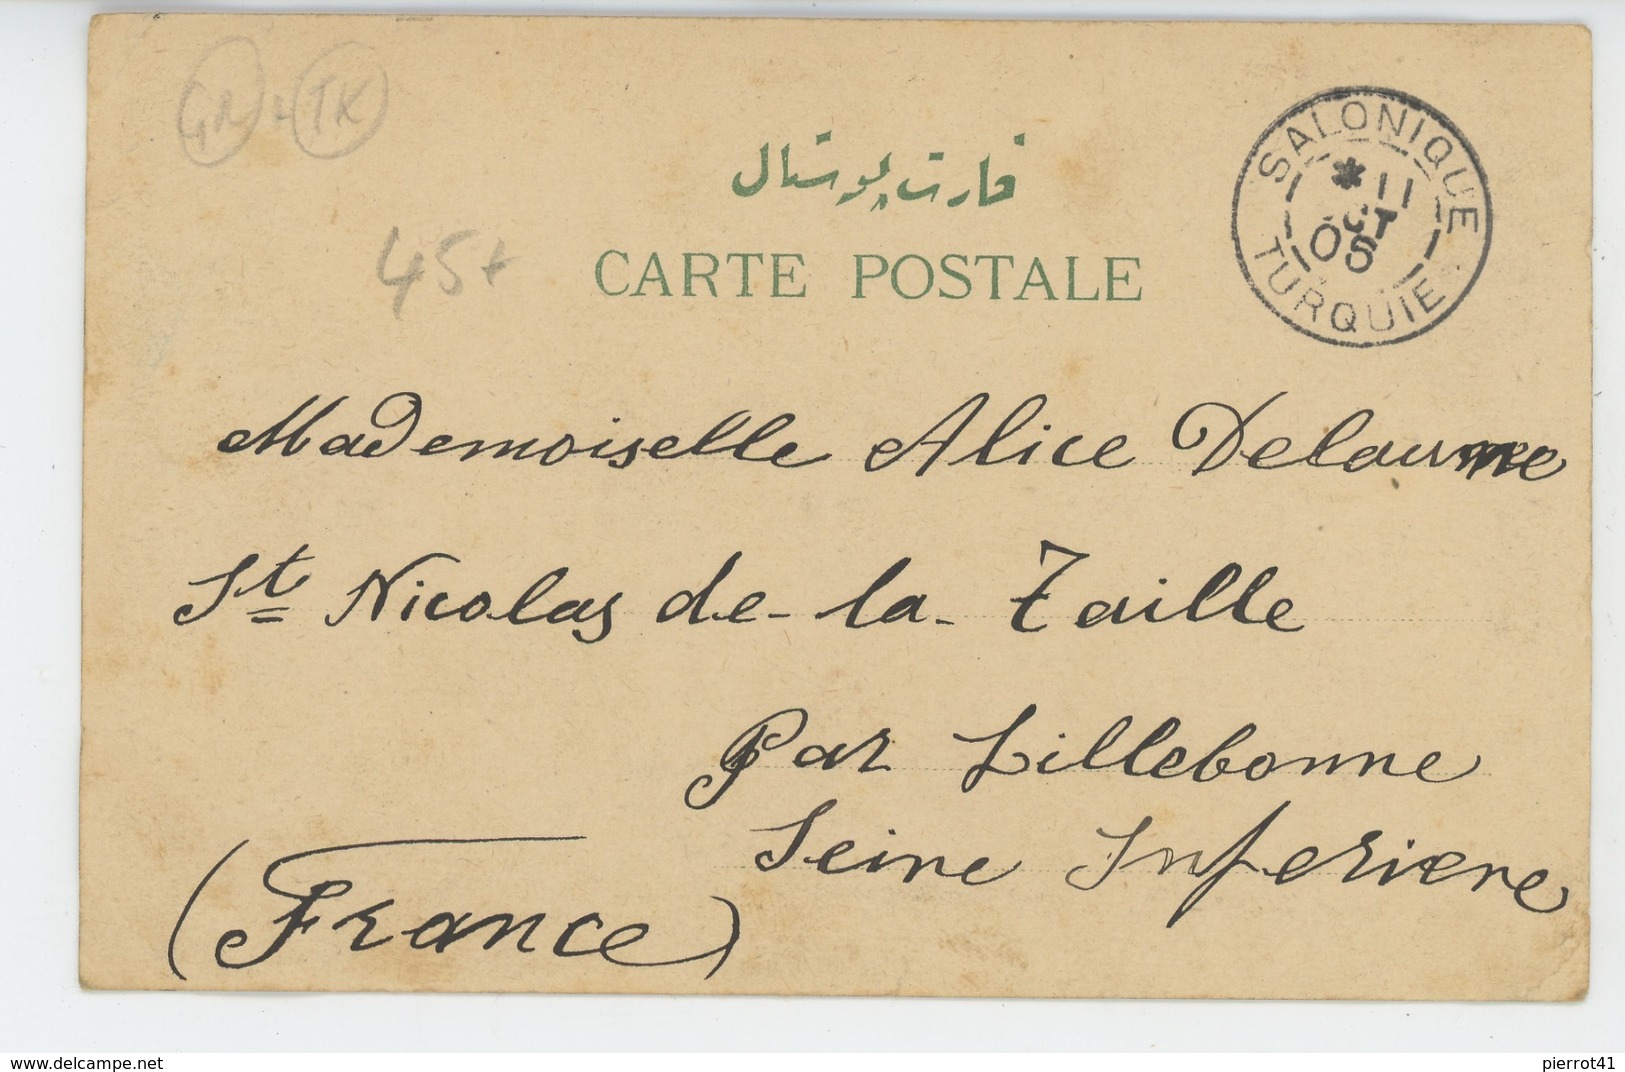 GR + TK
قارت پوستال
45+
CARTE POSTALE
SALONIQUE
* 11
OCT
05
TURQUIE
Mademoiselle Alice Delaune
St Nicolas de-la-Taille
Par Lillebonne
Seine Inferiere
(France)
www.delcampe.net
pierrot41